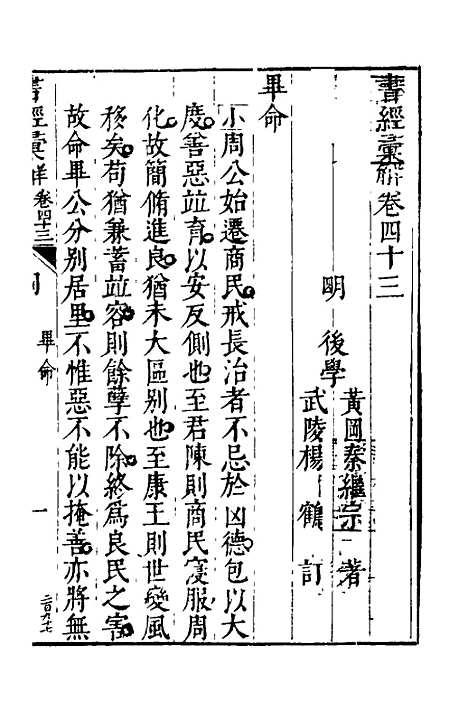 書經彙解卷四十三
明 後學 黃岡秦繼宗 著
武陵楊 鶴 訂
畢命
小周公始遷商民戒長治者不忌於凶德包以大
度善惡並育以安反側也至君陳則商民寖服周
化故簡脩進良猶未大區別也至康王則世變風
移矣苟猶兼蓄並容則餘孽不除終爲良民之害
故命畢公分別居里不惟惡不能以掩善亦將無
書經彙解 卷四十三 畢命 一